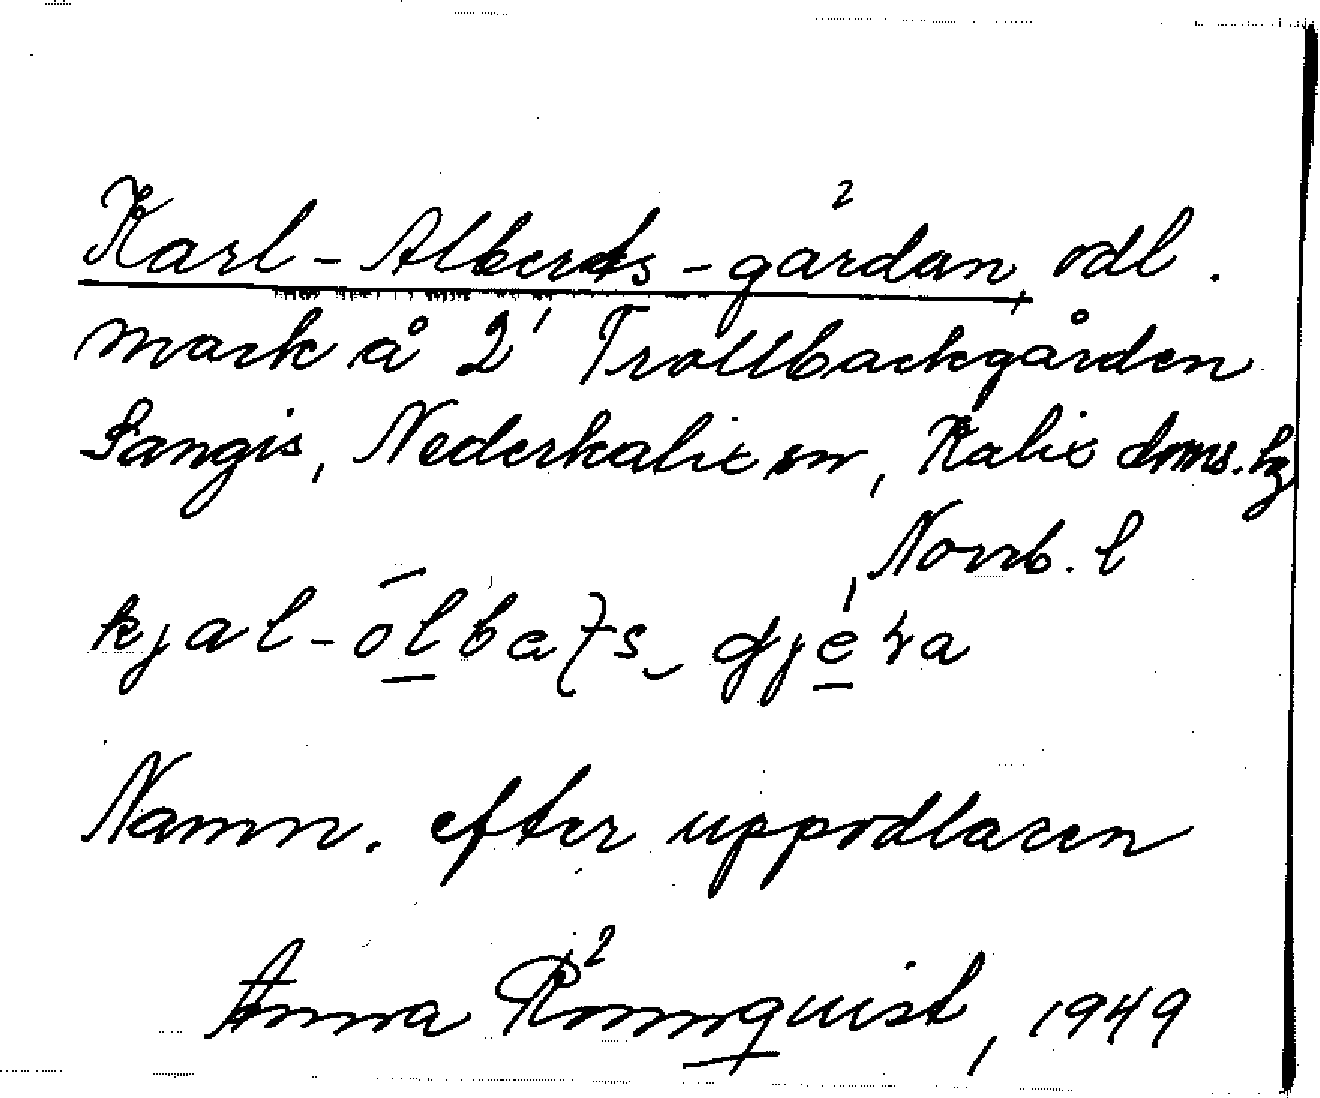 Karl-Alberts-gärdan, odl.
mark å 2' Trollbackgården
Sangis, Nederkalix sn, Kalix doms. hg
, Norrb. l
kjal-ólbaʃs gjéra
Namn. efter uppodlaren
Anna Rönnquist, 1949